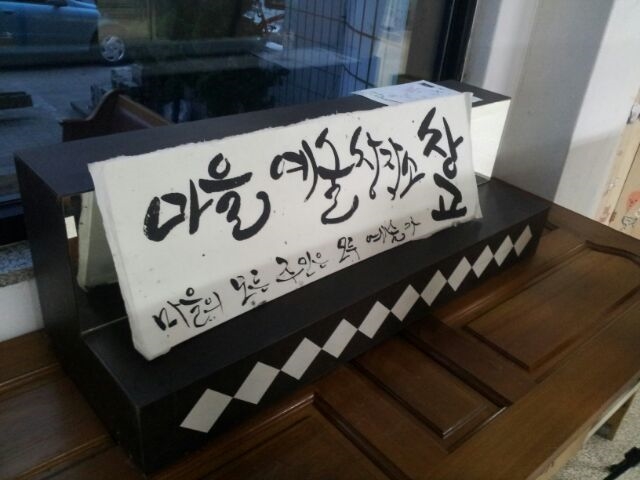 마을 예술 창작소 창고
마을의 모든 주민은 모두 예술가